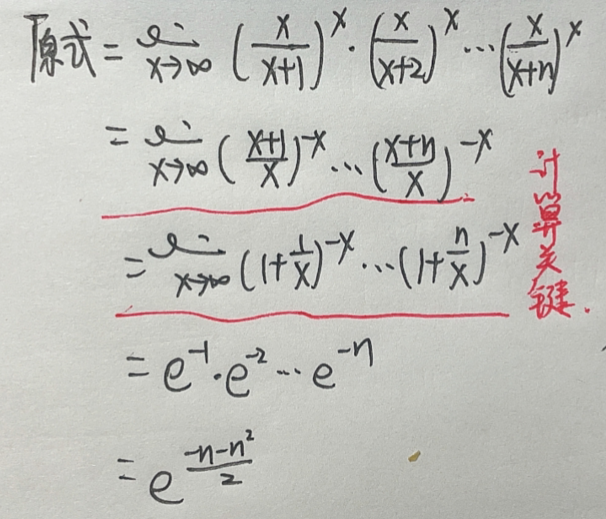 原式 = lim x→∞ (x/(x+1))^x · (x/(x+2))^x ⋯ (x/(x+n))^x
= lim x→∞ ((x+1)/x)^-x ⋯ ((x+n)/x)^-x
= lim x→∞ (1+1/x)^-x ⋯ (1+n/x)^-x
计算关键.
= e^-1 · e^-2 ⋯ e^-n
= e^((-n-n^2)/2)